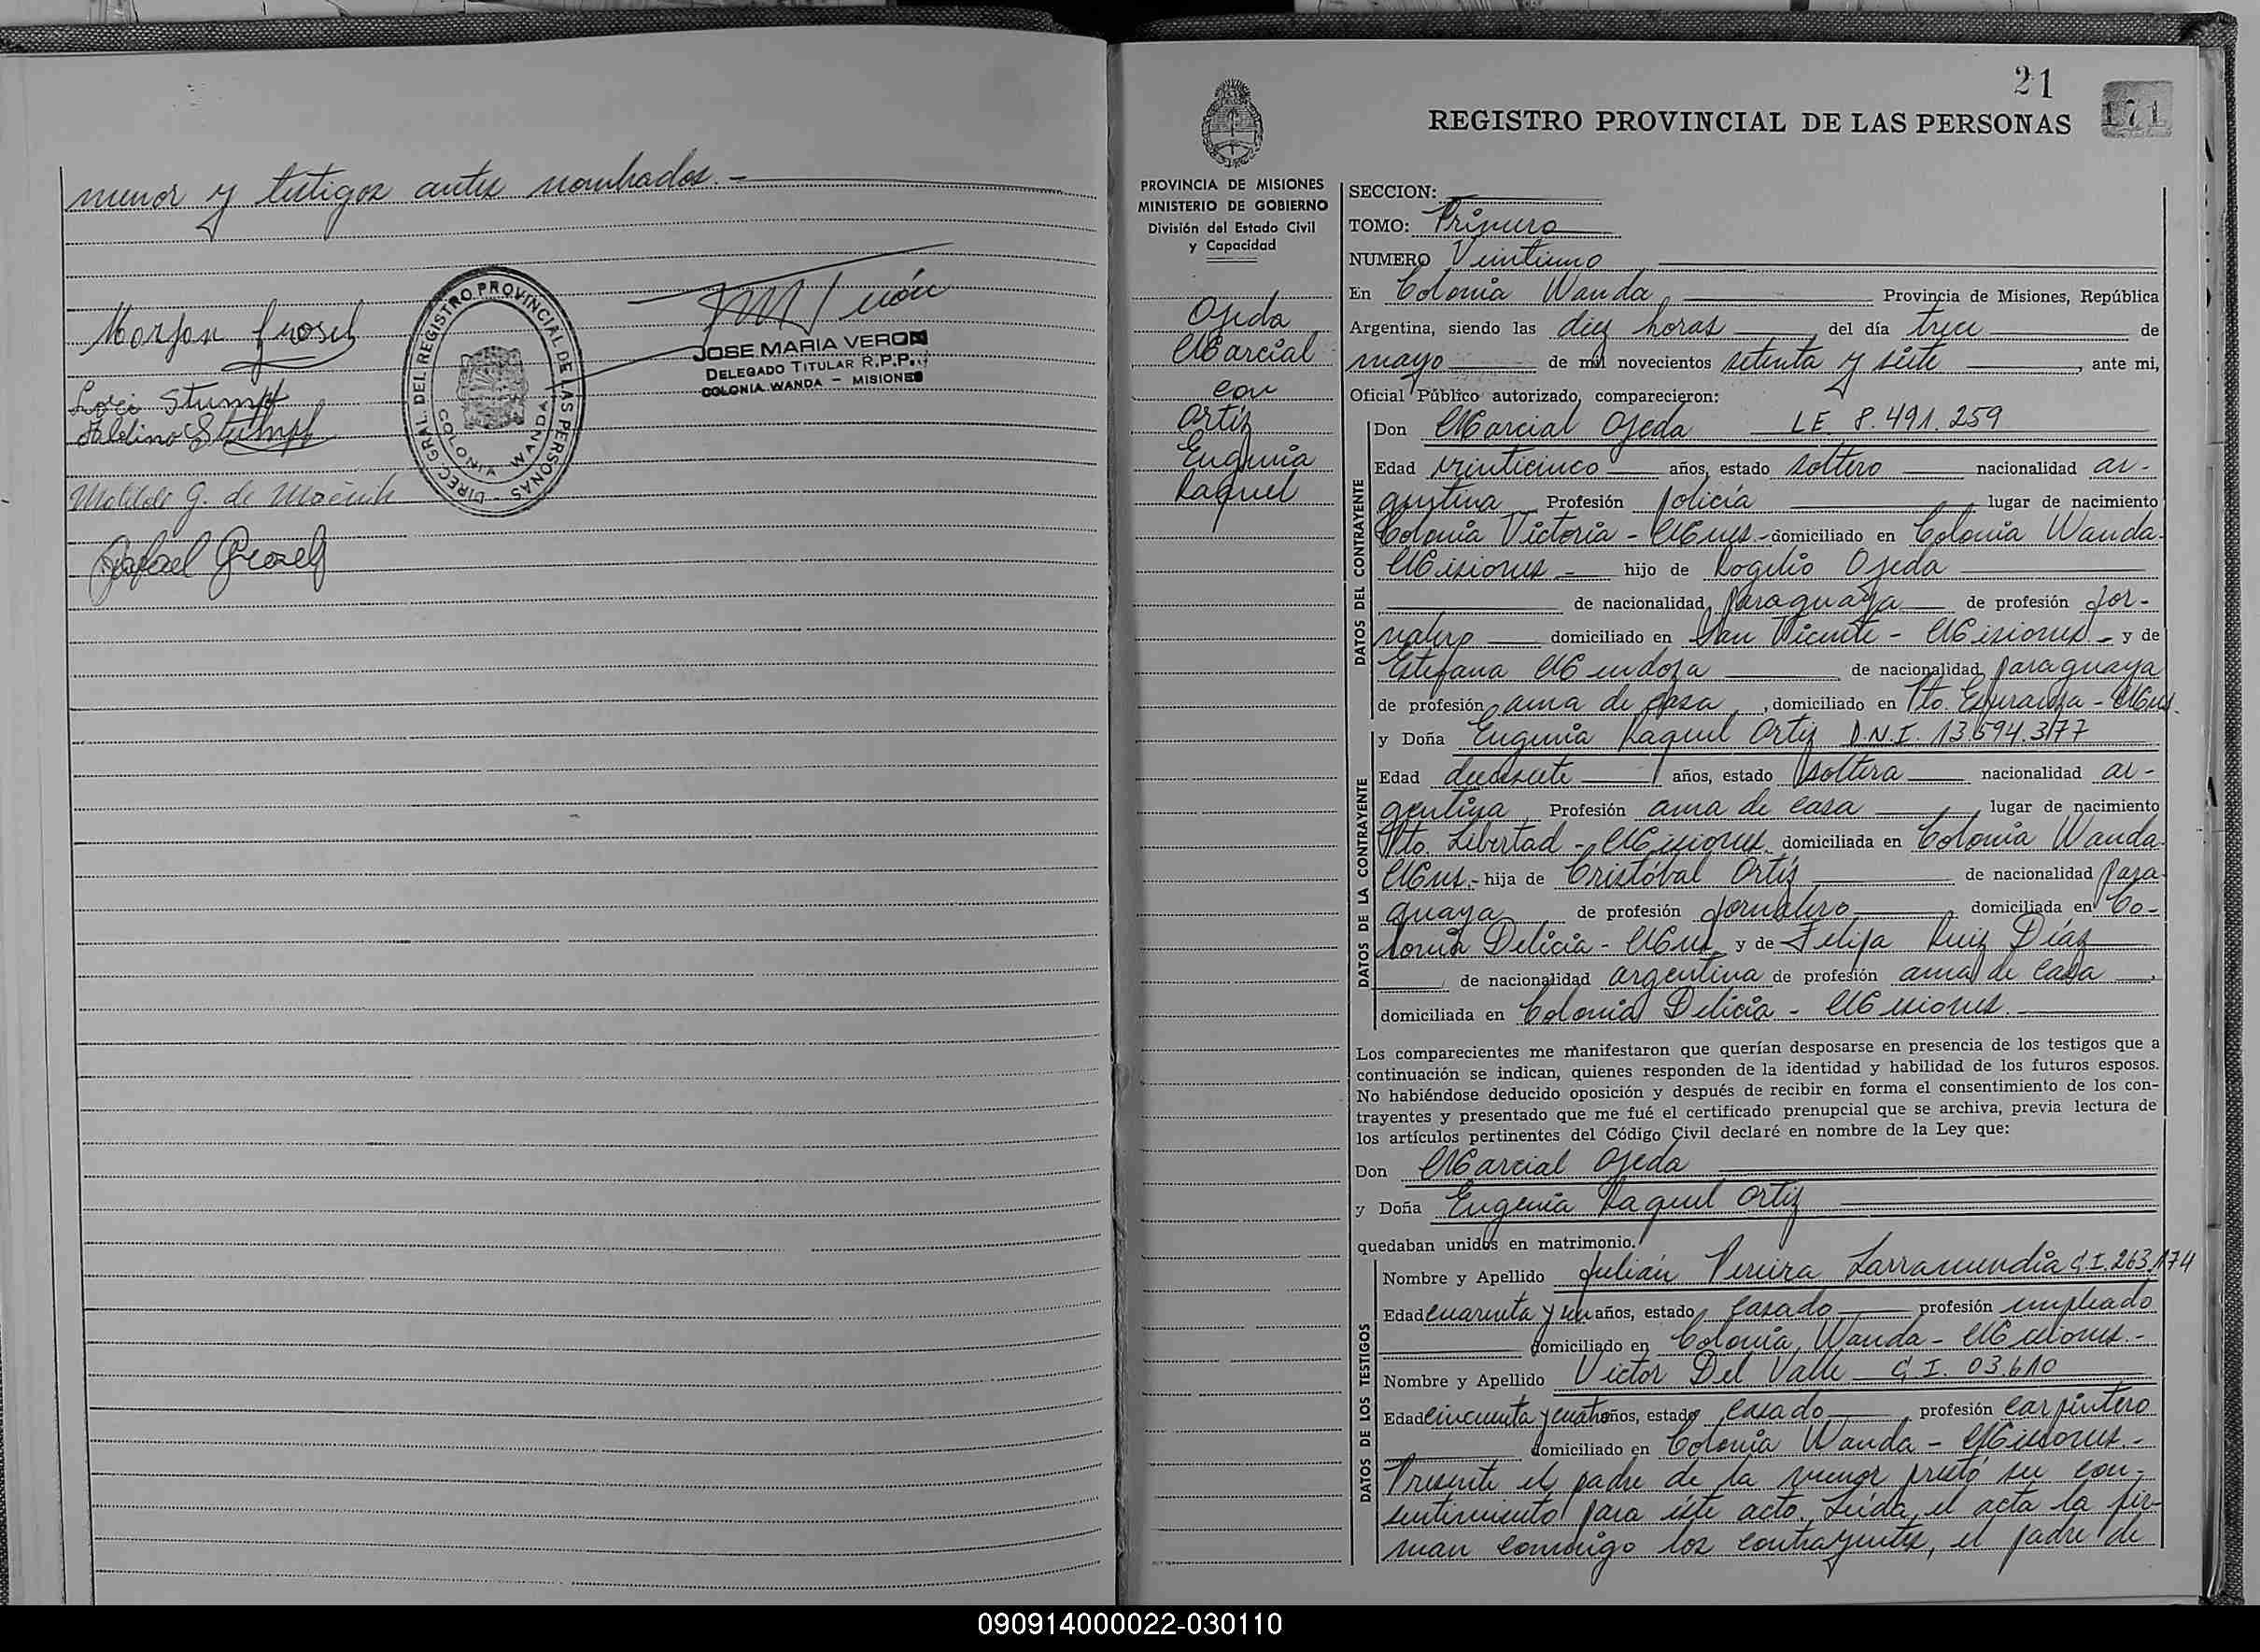 menor y testigos antes nombrados.-
Stumpf
Stumpf
DIREC. GRAL. DEL REGISTRO PROVINCIAL DE LAS PERSONAS -
COLONIA WANDA
JOSE MARIA VERON
DELEGADO TITULAR R.P.P.
COLONIA WANDA - MISIONES
21
171
REGISTRO PROVINCIAL DE LAS PERSONAS
PROVINCIA DE MISIONES
MINISTERIO DE GOBIERNO
División del Estado Civil
y Capacidad
Ojeda
Marcial
con
Ortíz
Eugenia
Raquel
SECCION:
TOMO: Primero
NUMERO Veintiuno
En Colonia Wanda, Provincia de Misiones, República
Argentina, siendo las diez horas del día trece de
mayo de mil novecientos setenta y siete, ante mi,
Oficial Público autorizado, comparecieron:
DATOS DEL CONTRAYENTE
Don Marcial Ojeda LE 8.491.259
Edad veinticinco años, estado soltero nacionalidad ar-
gentina Profesión policía lugar de nacimiento
Colonia Victoria - Mnes.- domiciliado en Colonia Wanda-
Misiones - hijo de Rogelio Ojeda
de nacionalidad paraguaya de profesión jor-
nalero domiciliado en San Vicente - Misiones.- y de
Estefana Mendoza de nacionalidad paraguaya
de profesión ama de casa, domiciliado en Pto. Esperanza - Mnes.
DATOS DE LA CONTRAYENTE
y Doña Eugenia Raquel Ortiz D.N.I. 13.594.377
Edad diecisiete años, estado soltera nacionalidad ar-
gentina Profesión ama de casa lugar de nacimiento
Pto. Libertad - Misiones. domiciliada en Colonia Wanda-
Mnes.- hija de Cristóbal Ortíz de nacionalidad para-
guaya de profesión jornalero domiciliada en Co-
lonia Delicia - Mnes. y de Felipa Ruiz Díaz
de nacionalidad argentina de profesión ama de casa,
domiciliada en Colonia Delicia - Misiones.
Los comparecientes me manifestaron que querían desposarse en presencia de los testigos que a
continuación se indican, quienes responden de la identidad y habilidad de los futuros esposos.
No habiéndose deducido oposición y después de recibir en forma el consentimiento de los con-
trayentes y presentado que me fué el certificado prenupcial que se archiva, previa lectura de
los artículos pertinentes del Código Civil declaré en nombre de la Ley que:
Don Marcial Ojeda
y Doña Eugenia Raquel Ortiz
quedaban unidos en matrimonio.
DATOS DE LOS TESTIGOS
Nombre y Apellido Julián Pereira Larramendia C.I. 263.174
Edad cuarenta y un años, estado casado profesión empleado
domiciliado en Colonia Wanda - Misiones.-
Nombre y Apellido Victor Del Valle C.I. 03.610
Edad cincuenta y cuatro años, estado casado profesión carpintero
domiciliado en Colonia Wanda - Misiones.-
Presente el padre de la menor prestó su con-
sentimiento para éste acto. Leída el acta la fir-
man conmigo los contrayentes, el padre de
090914000022-030110